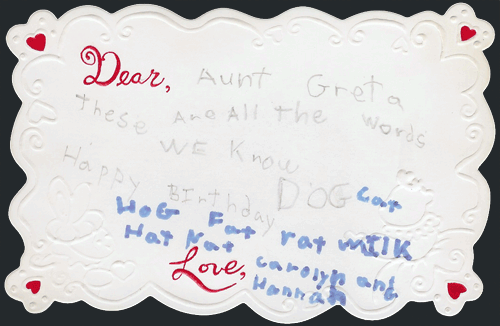 Dear, Aunt Greta
these Are All the words
WE Know
Happy BIrthday DOG Cat
HOG Fat rat MILK
Hat Nat
Love, Carolyn and
Hannah